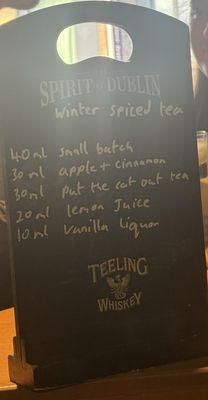 THE
SPIRIT OF DUBLIN
Winter spiced tea
40ml small batch
30ml apple + cinnamon
30ml Put the cat out tea
20ml lemon Juice
10ml Vanilla liquor
TEELING
WHISKEY